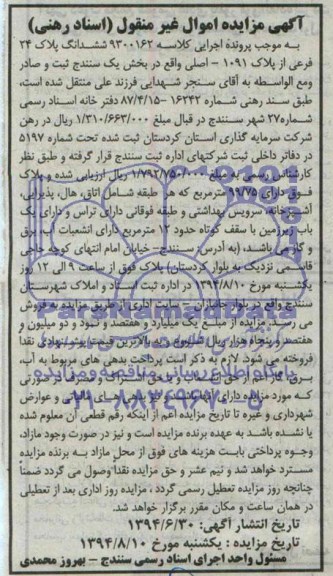 آگهی مزایده اموال غیر منقول (اسناد رهنی)
به موجب پرونده اجرایی کلاسه ۹۳۰۰۱۶۲ ششدانگ پلاک ۲۴
فرعی از پلاک ۱۰۹۱ - اصلی واقع در بخش یک سنندج ثبت و صادر
ومع الواسطه به آقای سنجر شهدایی فرزند علی منتقل شده است،
طبق سند رهنی شماره ۱۶۲۴۲ - ۸۷/۴/۱۵ دفتر خانه اسناد رسمی
شماره ۲۷ شهر سنندج در قبال مبلغ ۱/۳۱۰/۶۶۳/۰۰۰ ریال در رهن
شرکت سرمایه گذاری استان کردستان ثبت شده تحت شماره ۵۱۹۷
در دفاتر داخلی ثبت شرکتهای اداره ثبت سنندج قرار گرفته و طبق نظر
کارشناس رسمی به مبلغ ۱/۷۹۲/۷۵۰/۰۰۰ ریال ارزیابی شده و پلاک
فوق دارای ۹۹/۷۵ مترمربع که هر طبقه شامل اتاق، هال، پذیرایی،
آشپزخانه، سرویس بهداشتی و طبقه فوقانی دارای تراس و دارای یک
باب زیرزمین با سقف کوتاه حدود ۱۲ مترمربع دارای انشعابات آب، برق
و گاز می باشند، (به آدرس: سنندج- خیابان امام انتهای کوچه حاجی
قاسمی نزدیک به بلوار کردستان) پلاک فوق از ساعت ۹ الی ۱۲ روز
یکشنبه مورخ ۱۳۹۴/۸/۱۰ در اداره ثبت اسناد و املاک شهرستان
سنندج واقع در بلوار جانبازان - سایت اداری از طریق مزایده به فروش
می رسد. مزایده از مبلغ یک میلیارد و هفتصد و نود و دو میلیون و
هفتصد و پنجاه هزار ریال شروع و به بالاترین قیمت پیشنهادی نقدا
فروخته می شود. لازم به ذکر است پرداخت بدهی های مربوط به آب،
برق، گاز اعم از حق انشعاب و یا حق اشتراک و مصرف در صورتی
که مورد مزایده دارای آنها باشد و نیز بدهی های مالیاتی و عوارض
شهرداری و غیره تا تاریخ مزایده اعم از اینکه رقم قطعی آن معلوم شده
یا نشده باشد به عهده برنده مزایده است و نیز در صورت وجود مازاد،
وجوه پرداختی بابت هزینه های فوق از محل مازاد به برنده مزایده
مسترد خواهد شد و نیم عشر و حق مزایده نقدا وصول می گردد ضمنا
چنانچه روز مزایده تعطیل رسمی گردد، مزایده روز اداری بعد از تعطیلی
در همان ساعت و مکان مقرر برگزار خواهد شد.
تاریخ انتشار آگهی: ۱۳۹۴/۶/۳۰
تاریخ مزایده : یکشنبه مورخ ۱۳۹۴/۸/۱۰
مسئول واحد اجرای اسناد رسمی سنندج - بهروز محمدی
ParsNamadData
پایگاه اطلاع رسانی مناقصه و مزایده
۰۲۱-۸۸۳۴۹۶۷۰-۵